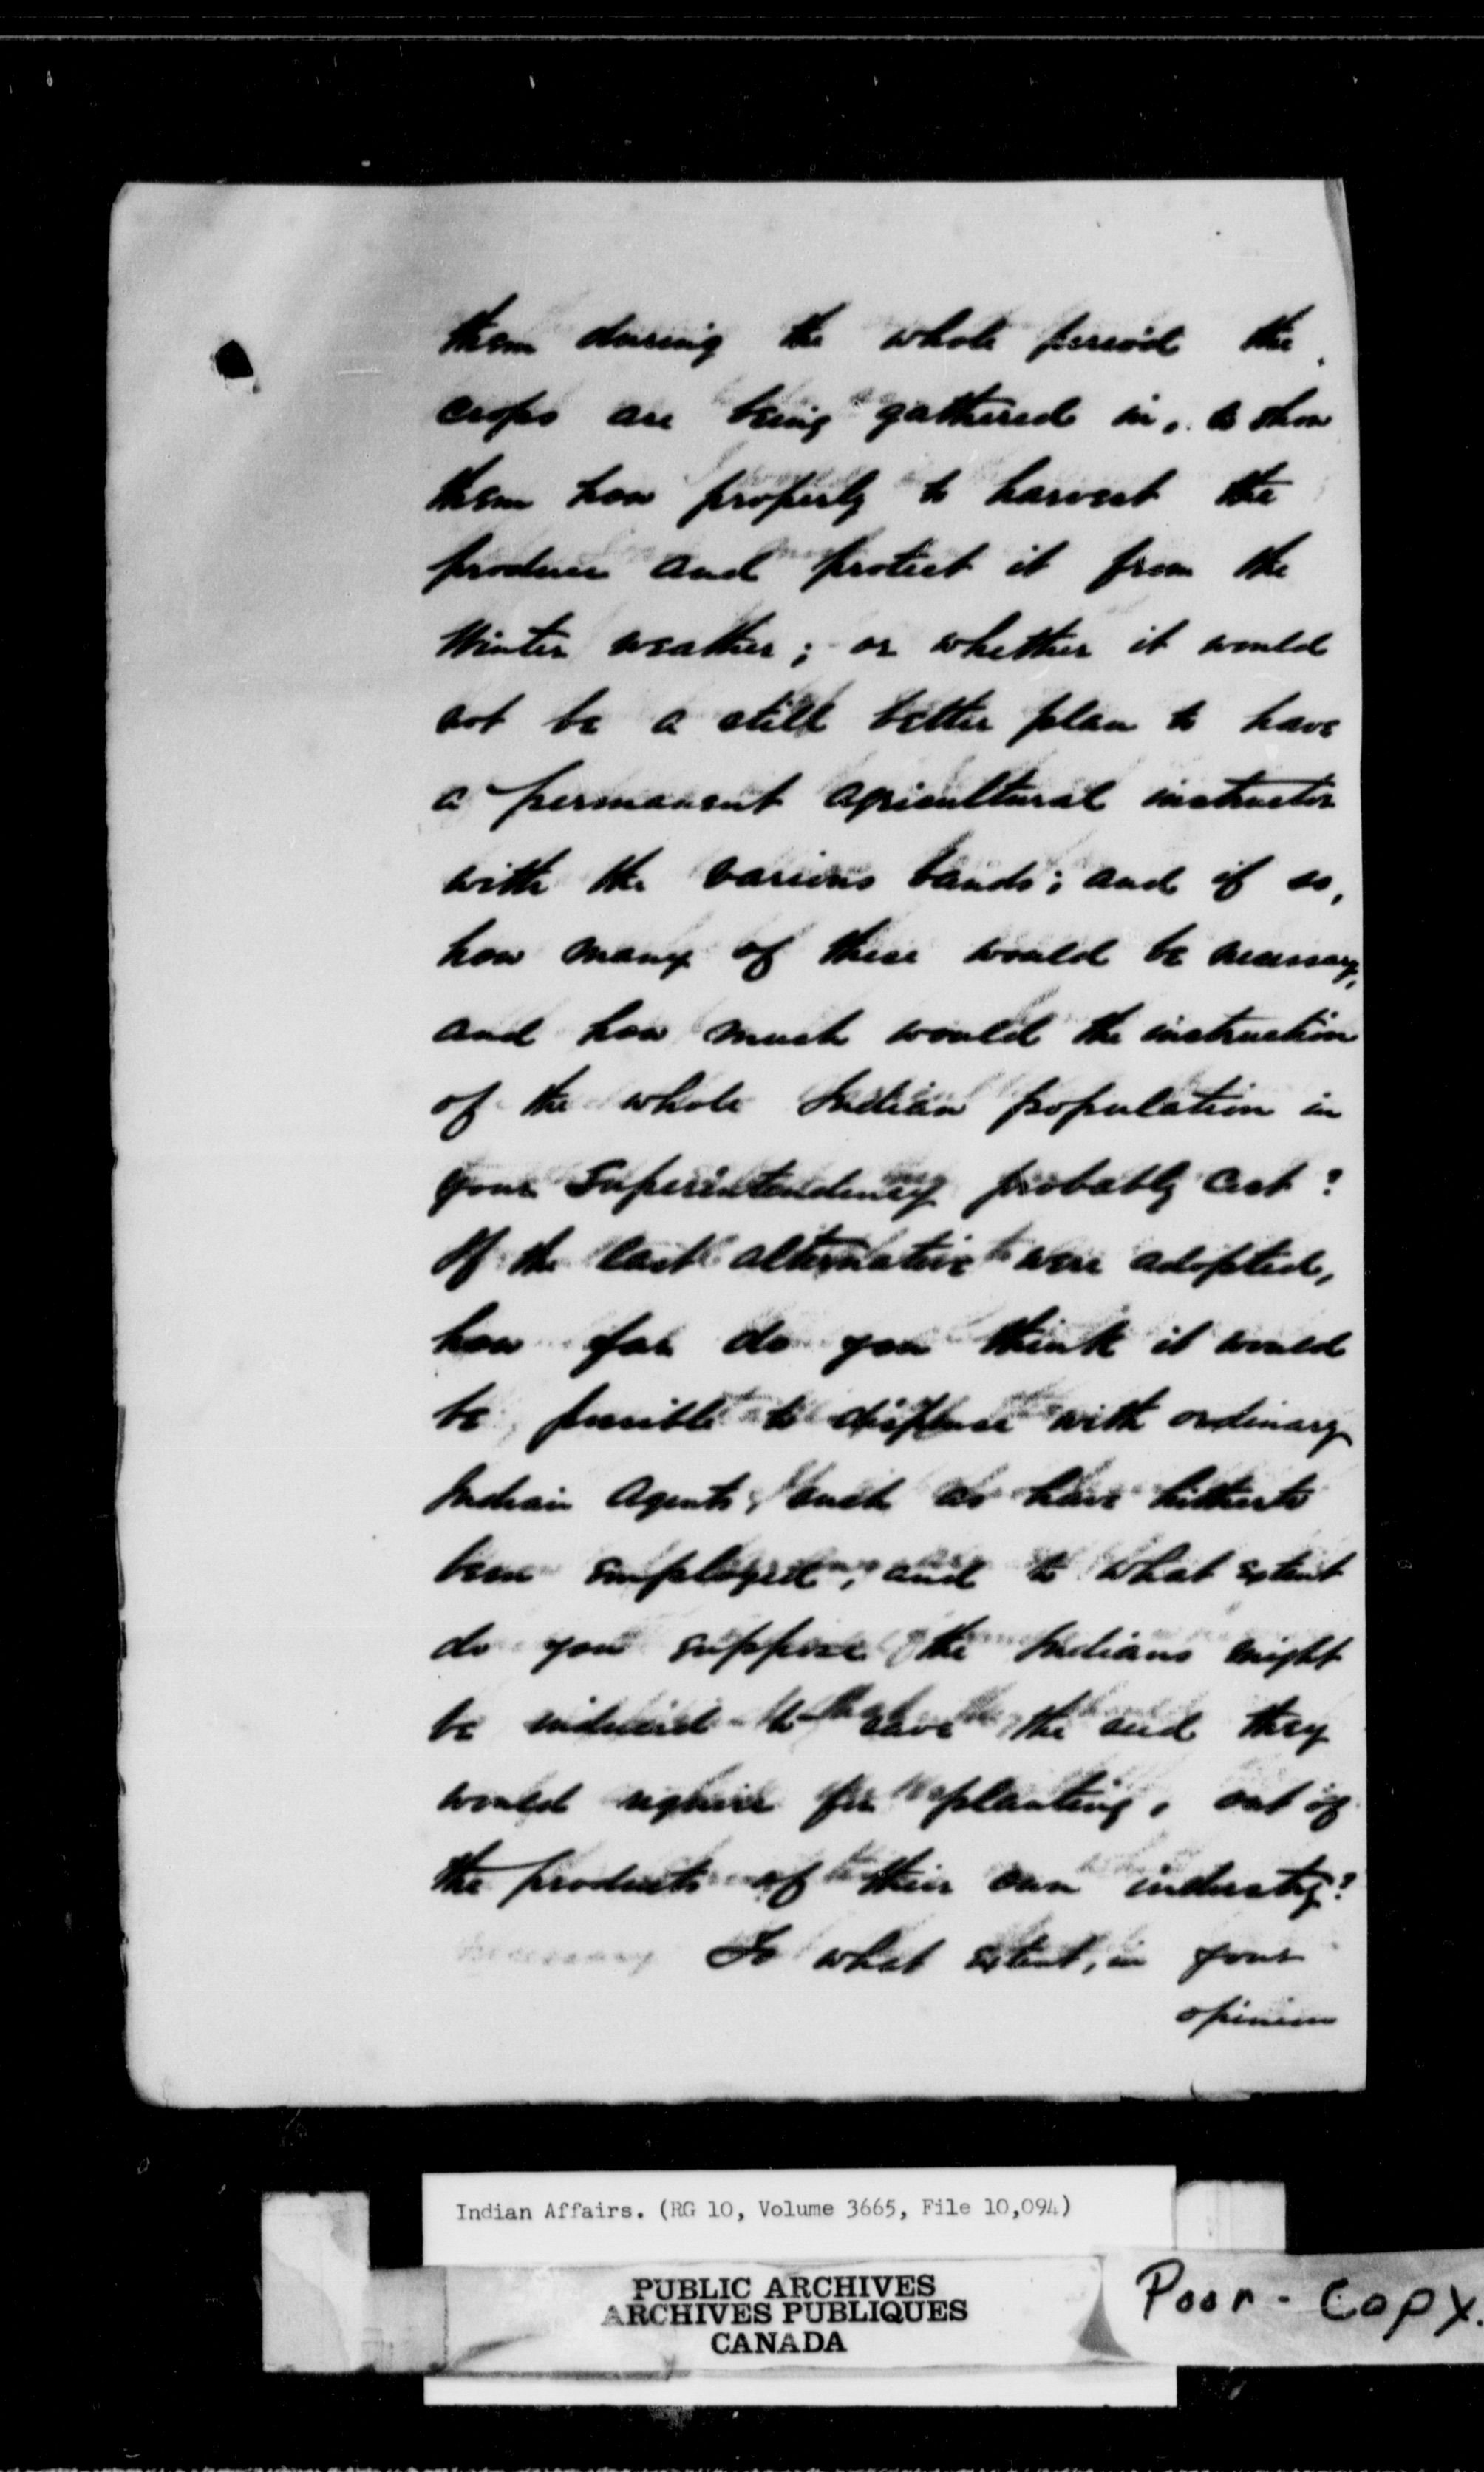 them during the whole period the
crops are being gathered in, to show
them how properly to harvest the
produce and protect it from the
Winter weather; or whether it would
not be a still better plan to have
a permanent agricultural instructor
with the various bands; and if so,
how many of these would be necessary,
and how much would the instruction
of the whole Indian population in
your Superintendency probably cost?
If the last alternative were adopted,
how far do you think it would
be possible to dispense with ordinary
Indian Agents, such as have hitherto
been employed, and to what extent
do you suppose the Indians might
be induced to save the seed they
would require for planting, out of
the products of their own industry?
To what extent, in your
opinion
Indian Affairs. (RG 10, Volume 3665, File 10,094)
PUBLIC ARCHIVES
ARCHIVES PUBLIQUES
CANADA
Poor - Copy.